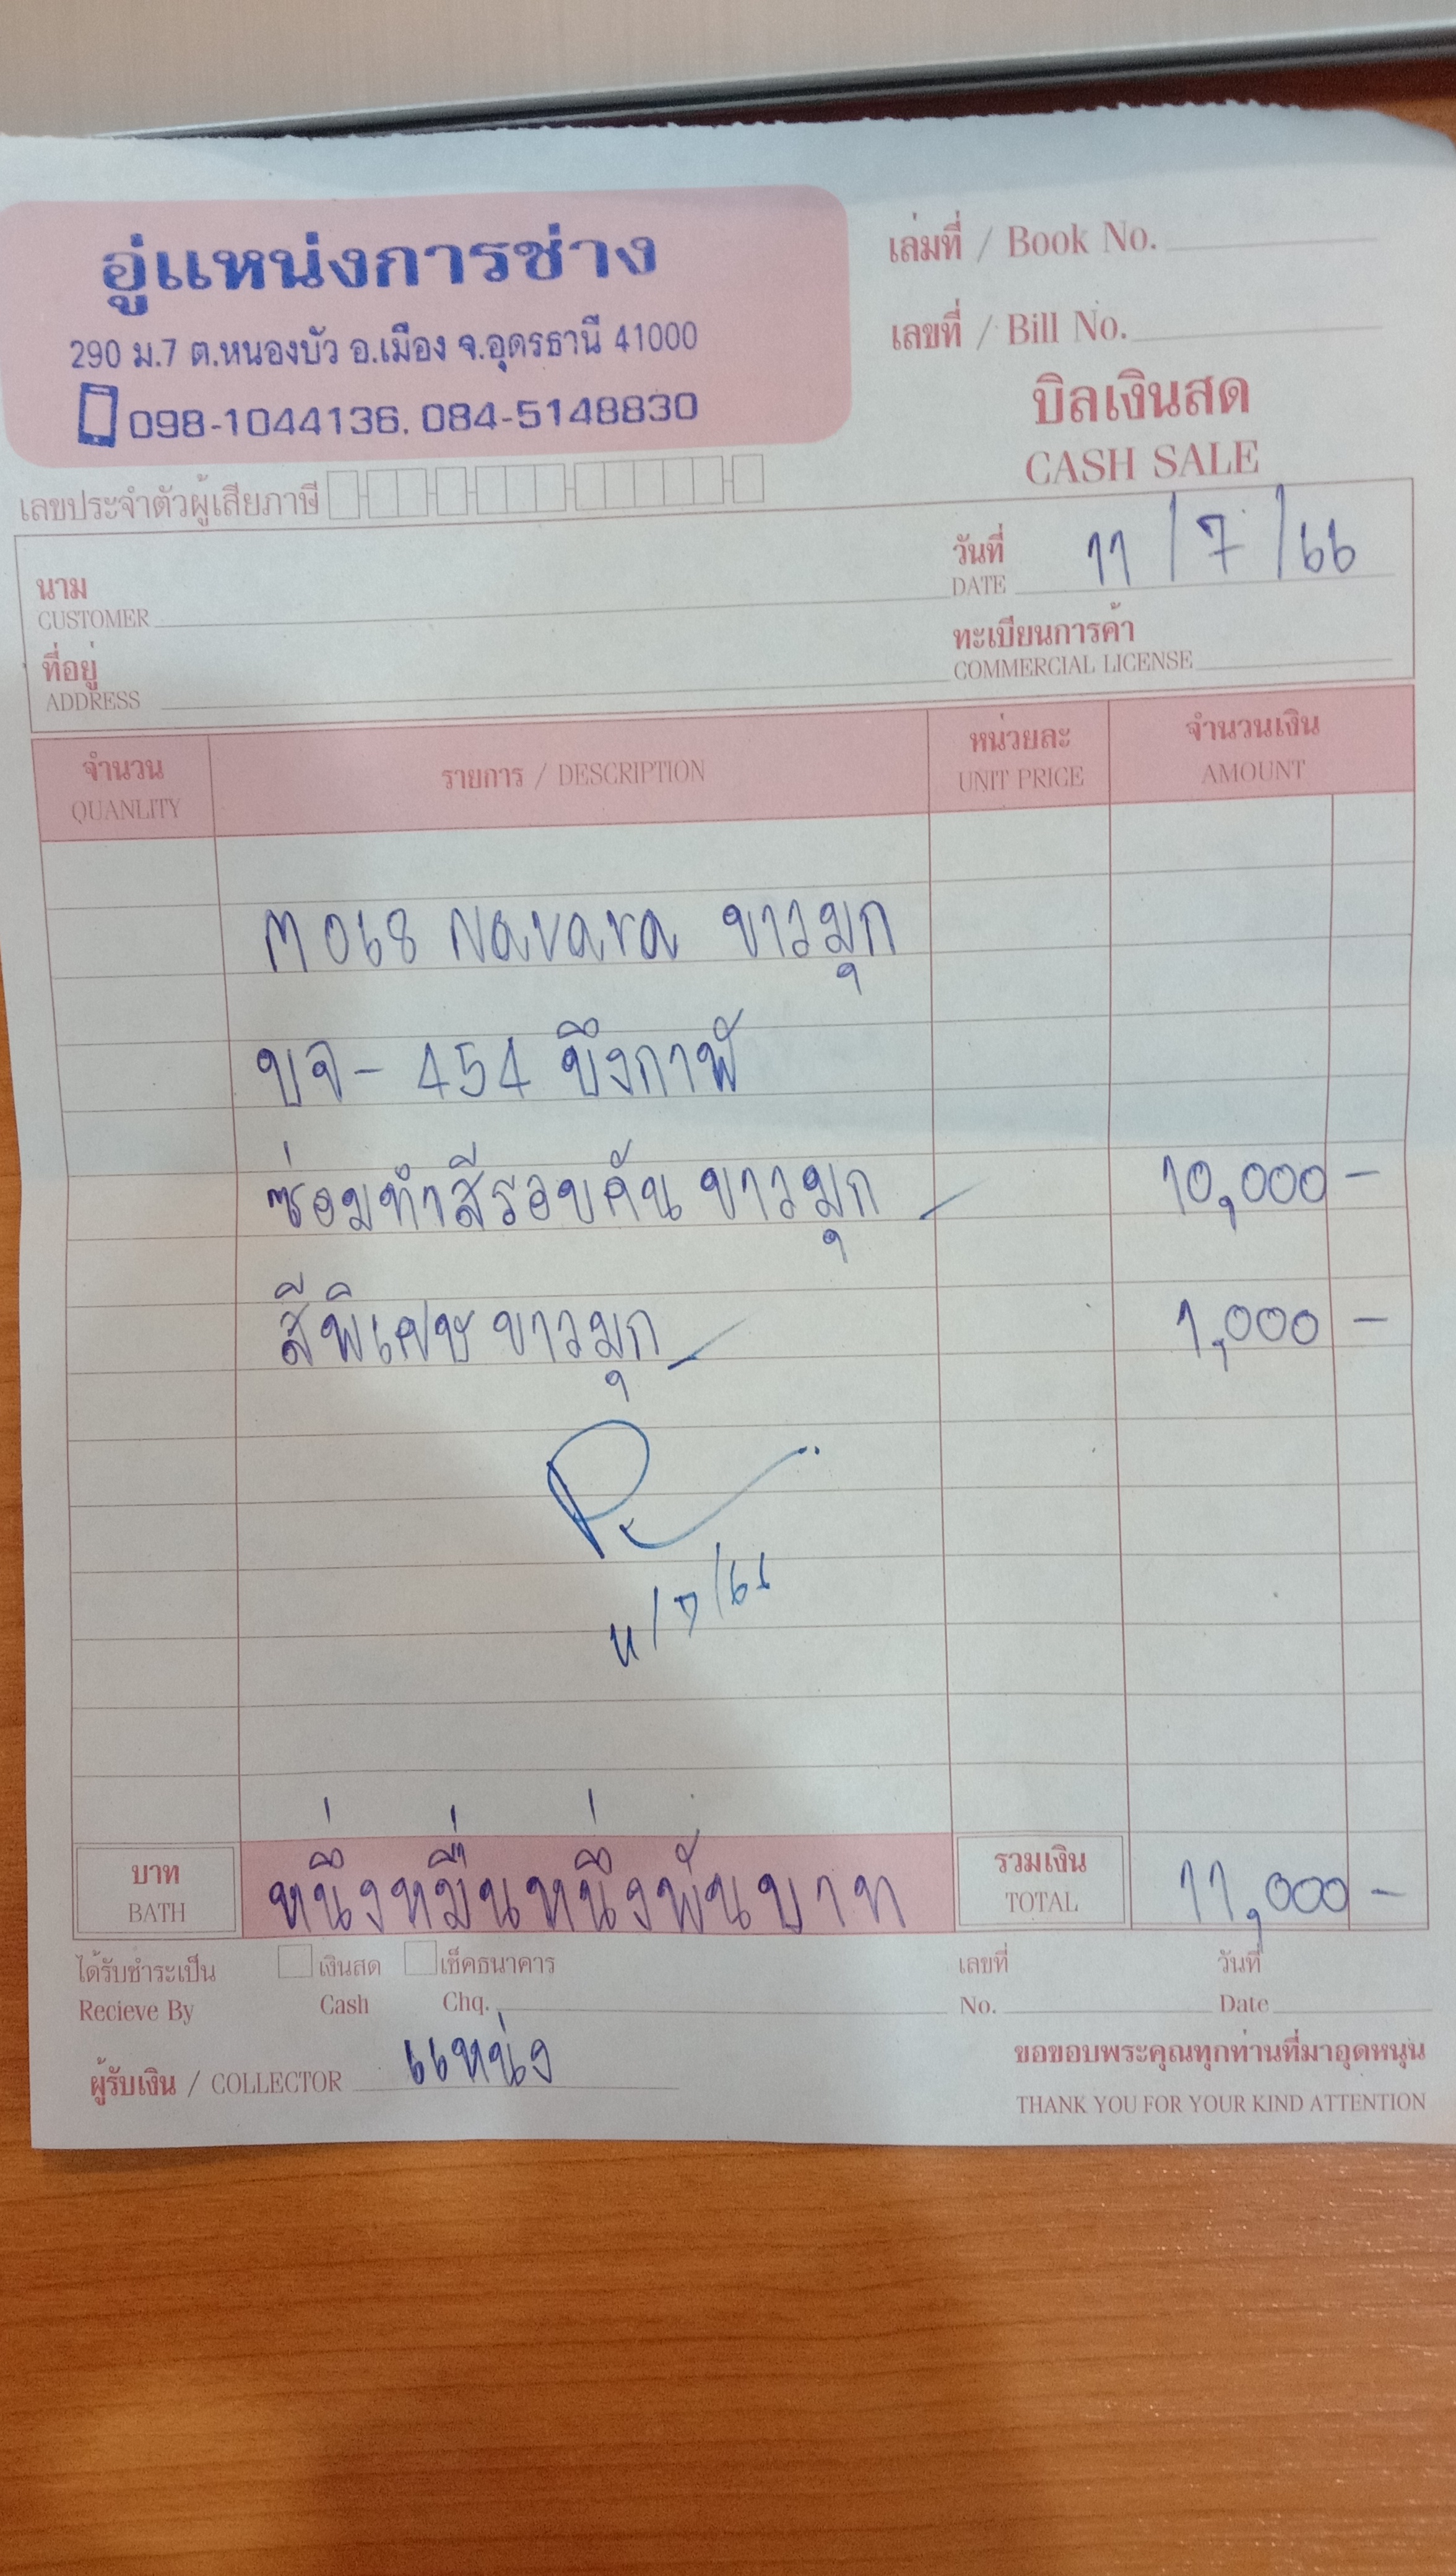 อู่แหน่งการช่าง
290 ม.7 ต.หนองบัว อ.เมือง จ.อุดรธานี 41000
098-1044136, 084-5148830
เล่มที่ / Book No.
เลขที่ / Bill No.
บิลเงินสด
CASH SALE
เลขประจำตัวผู้เสียภาษี
นาม
CUSTOMER
วันที่ 11/7/66
DATE
ที่อยู่
ADDRESS
ทะเบียนการค้า
COMMERCIAL LICENSE
จำนวน รายการ / DESCRIPTION หน่วยละ จำนวนเงิน
QUANLITY UNIT PRICE AMOUNT
M068 Navara ขาวมุก
บจ-454 บึงกาฬ
ซ่อมทำสีรอบคัน ขาวมุก 10,000 -
สีพิเศษ ขาวมุก 1,000 -
11/7/66
บาท หนึ่งหมื่นหนึ่งพันบาท รวมเงิน 11,000 -
BATH TOTAL
ได้รับชำระเป็น เงินสด เช็คธนาคาร เลขที่ วันที่
Recieve By Cash Chq. No. Date
ผู้รับเงิน / COLLECTOR แหน่ง
ขอขอบพระคุณทุกท่านที่มาอุดหนุน
THANK YOU FOR YOUR KIND ATTENTION